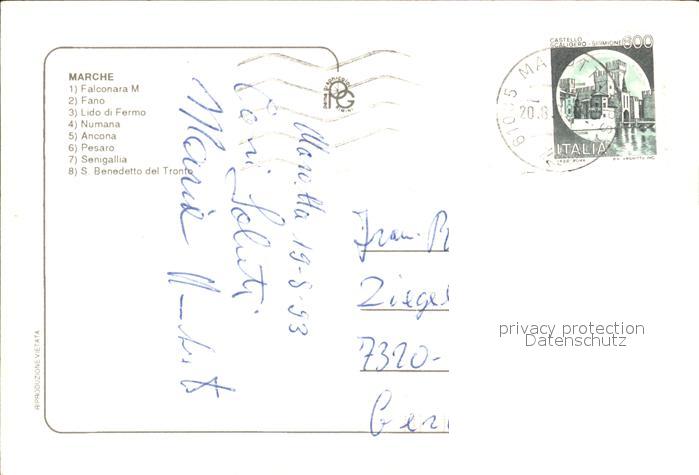 MARCHE
1) Falconara M
2) Fano
3) Lido di Fermo
4) Numana
5) Ancona
6) Pesaro
7) Senigallia
8) S. Benedetto del Tronto
RIPRODUZIONE VIETATA
Marotta 19-8-93
Cari Saluti
Maria
CASTELLO
SCALIGERO - SIRMIONE 600
ITALIA
61035 MAROT
20.8.
Frau
Zieges
7320-
Ger
privacy protection
Datenschutz